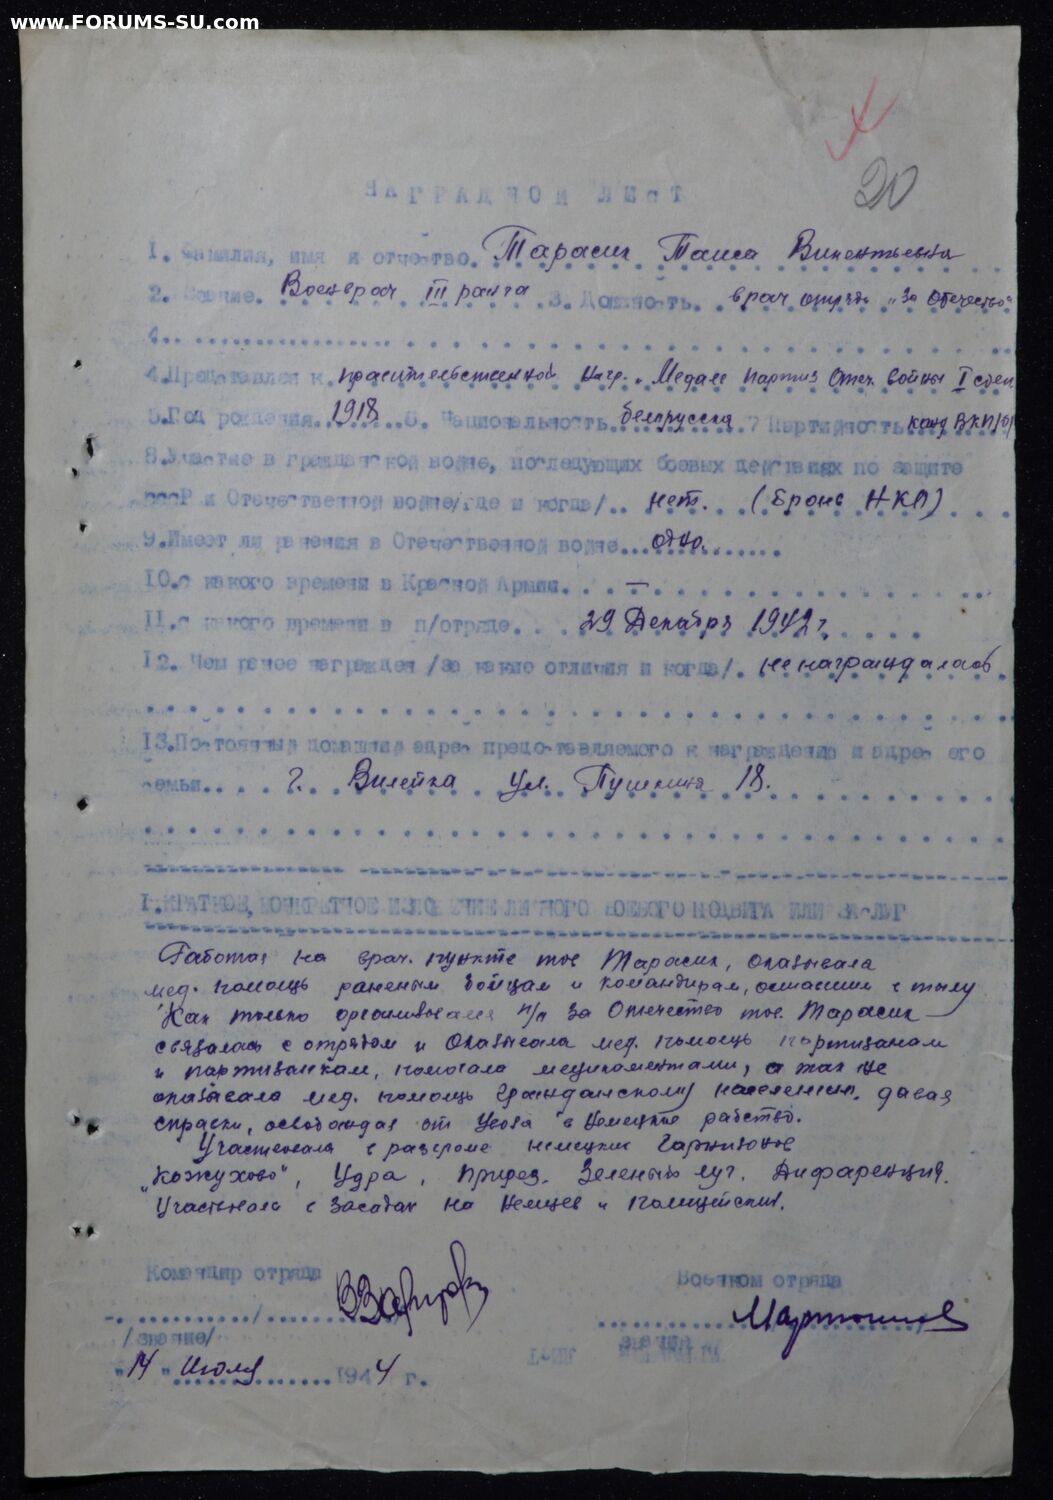 www.FORUMS-SU.com
20
НАГРАДНОЙ ЛИСТ
1. Фамилия, имя и отчество. Тарасик Таиса Викентьевна
2. Звание. Военврач III ранга 3. Должность. врач отряда „За Отечество"
4.
4. Представлен к правительственной нагр. „Медале партиз Отеч. войны I степ
5. Год рождения 1918 6. Национальность белорусска 7 Партийность канд ВКП/б/
8. Участие в гражданской войне, последующих боевых действиях по защите
СССР и Отечественной войне/где и когда/.. нет. (
9. Имеет ли ранения в Отечественной войне... одно.
10. с какого времени в Красной Армии. —
11. с какого времени в п/отряде. 29 Декабря 1942 г.
12. Чем ранее награжден /за какие отличия и когда/. не награждалась
13. Постоянный домашний адрес представляемого к награждению и адрес его
семьи.... г. Вилейка ул. Пушкина 18.
1. КРАТКОЕ, КОНКРЕТНОЕ ИЗЛОЖЕНИЕ ЛИЧНОГО БОЕВОГО ПОДВИГА ИЛИ ЗАСЛУГ
Работая на врач. пункте тов Тарасик, оказывала
мед. помощь раненым бойцам и командирам, в тылу
Как только организовался п/о За Отечество тов. Тарасик
связалась с отрядом и оказывала мед. помощь партизанам
и партизанкам, помогала медикаментами, а так же
оказывала мед. помощь гражданскому населению, давая
справки, освобождая от увоза в немецкое рабство.
Участвовала в разгроме немецких гарнизонов
„Кожухово", Удра, Зеленый луг.
Участвовала в засадах на немцев и полицейских.
Командир отряда
Военком отряда
Мартынов
/звание/
звание
"14" Июля 1944 г.